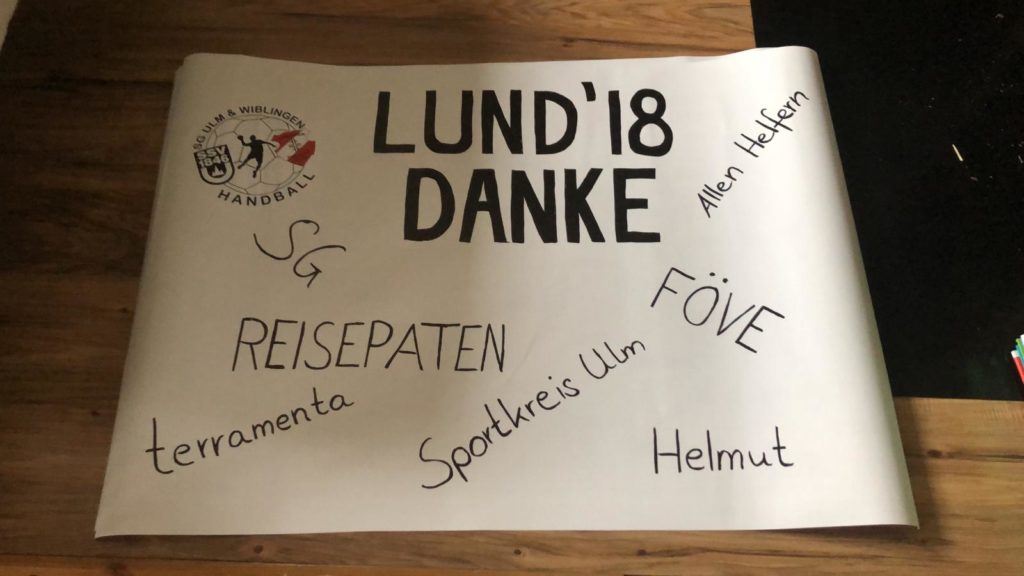 SG ULM & WIBLINGEN
HANDBALL
LUND'18
DANKE
Allen Helfern
SG
FÖVE
REISEPATEN
terramenta
Sportkreis Ulm
Helmut